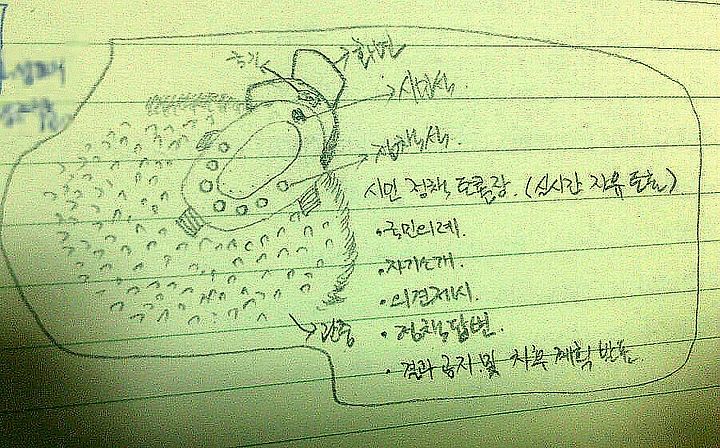 국기
화면
사회석
정책석
시민 정책 토론장. (실시간 자유 토론)
• 국민의례.
• 자기소개.
• 의견제시.
• 정책답변.
• 결과 공지 및 차후 계획 반영.
관중